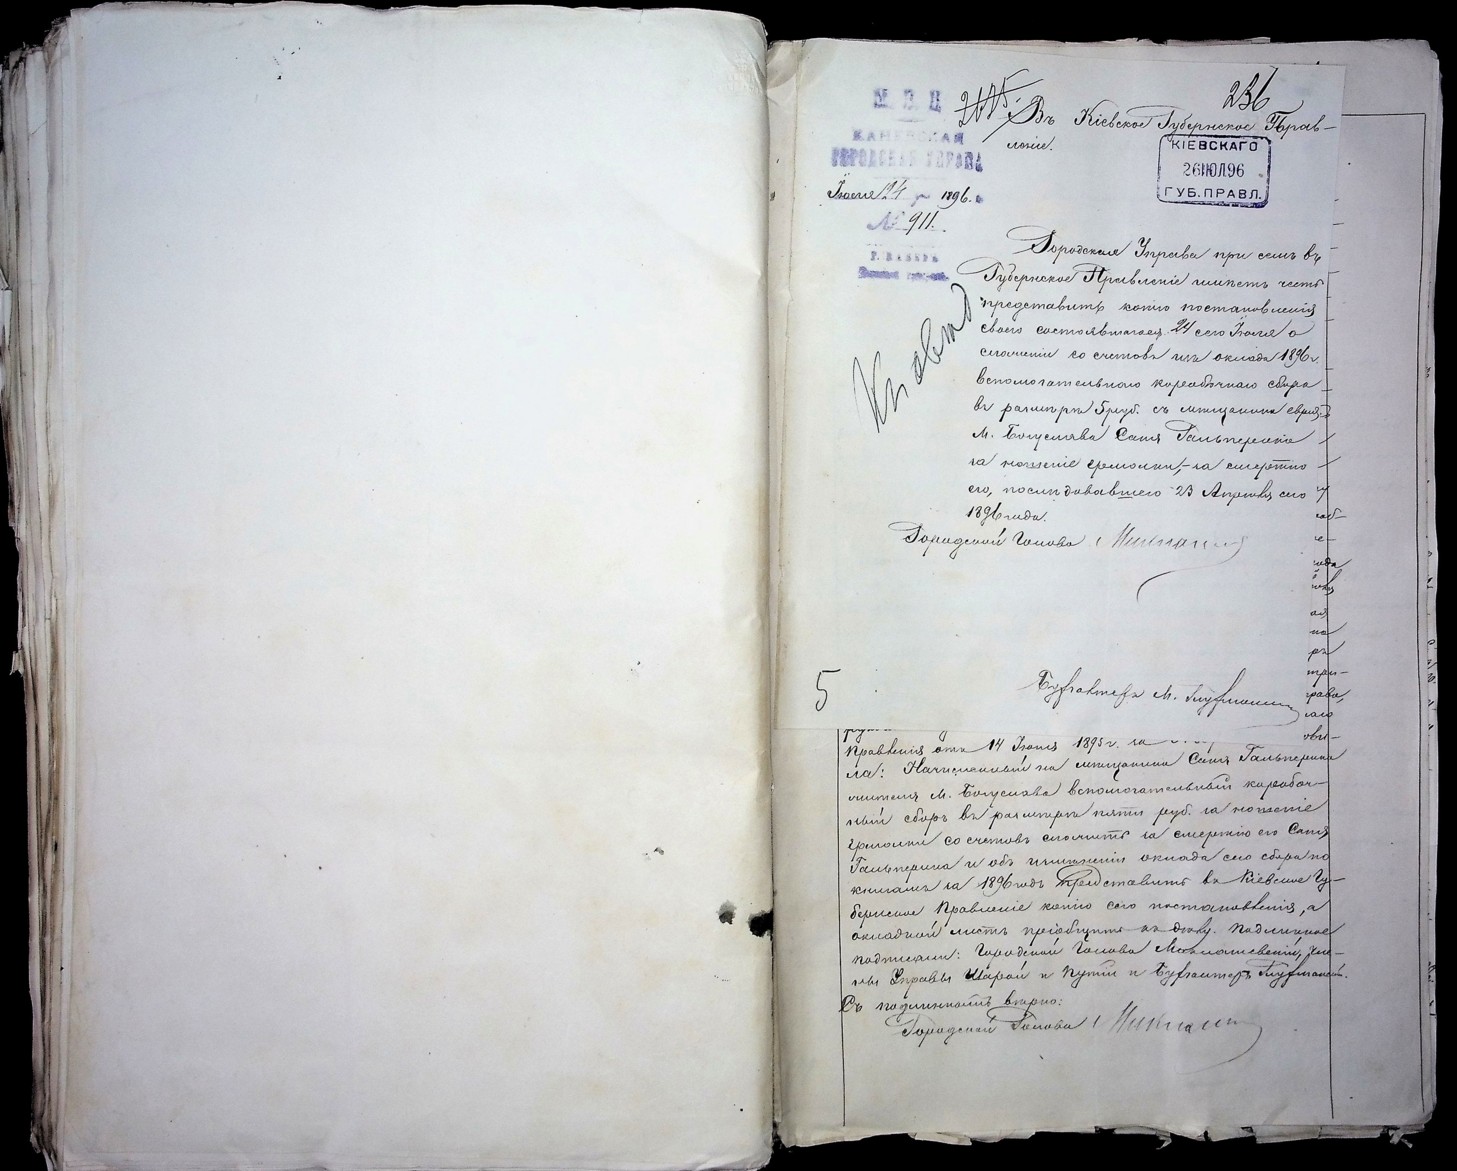 236
2075.
М. В. Д.
КАНЕВСКАЯ
ГОРОДСКАЯ УПРАВА
Іюля 24 дня 1896 г.
№ 911.
Г. КАНЕВЪ
Въ Кіевское Губернское Прав-
леніе.
КІЕВСКАГО
26 ІЮЛ 96
ГУБ. ПРАВЛ.
Городская Управа при семъ въ
Губернское Правленіе имѣетъ честь
представить копію постановленія
своего состоявшагося 24 сего Іюля о
сложеніи со счетовъ изъ оклада 1896 г.
вспомогательнаго коробочнаго сбора
въ размѣрѣ 5 руб. съ мѣщанина еврея
М. Богуслава Саня Гальперина
за ношеніе ермолки,-за смертію
его, послѣдовавшею 23 Апрѣля сего
1896 года.
Городской Голова
Бухгалтеръ М.
5
Правленія отъ 14 Іюня 1895 г. за
ла: Начисленный на мѣщанина Саня Гальперина
жителя М. Богуслава вспомогательный коробоч-
ный сборъ въ размѣрѣ пяти руб. за ношеніе
ермолки со счетовъ сложить за смертію его Саня
Гальперина и объ исключеніи оклада сего сбора по
книгамъ за 1896 годъ представить въ Кіевское Гу-
бернское Правленіе копію сего постановленія, а
окладной листъ пріобщить къ дѣлу. Подлинное
подписали: Городской Голова Чле-
ны Управы и и Бухгалтеръ
Съ подлиннымъ вѣрно:
Городской Голова